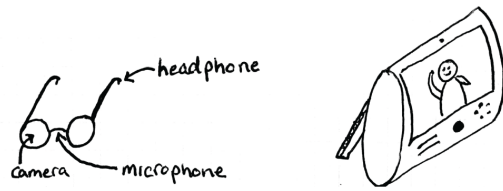 headphone
camera
microphone